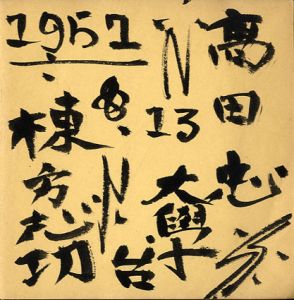 1951
8
13
髙田忠
大學
台
棟方志功